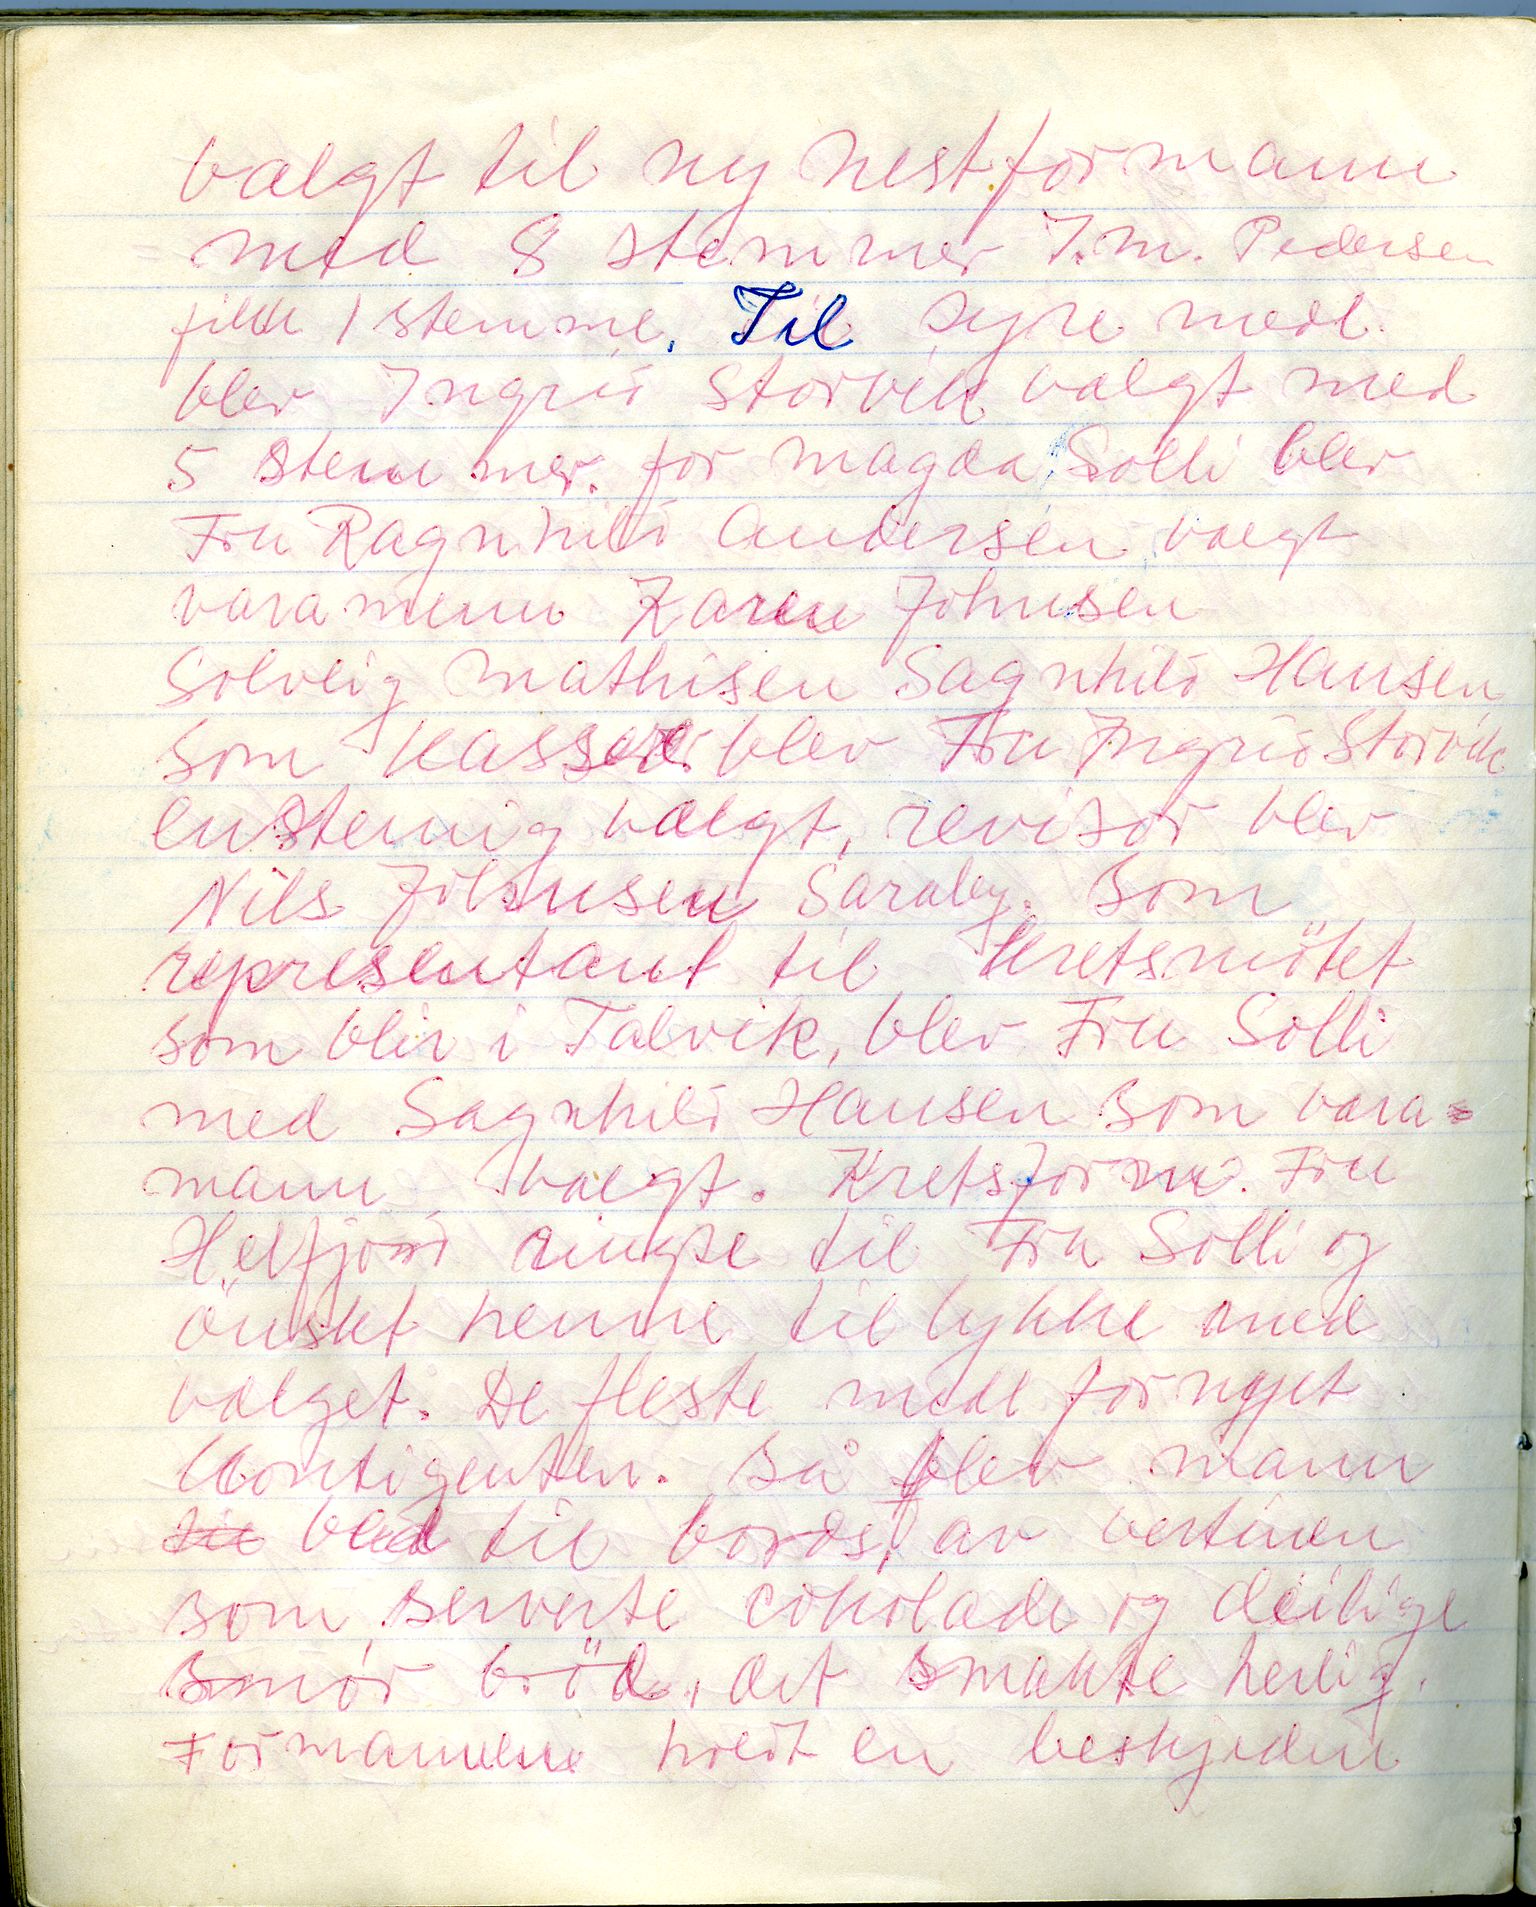 valgt til ny nestformann
med 8 stemmer J.M. Pedersen
fikk 1 stemme. Til syre medl.
blev Ingrid Storvik valgt med
5 stemmer. for Magda Solli blev
Fru Ragnhild Andersen valgt
varamenn Karen Johnsen
Solveig Mathisen Sagnhild Hansen
som kasser. blev Fru Ingrid Storvik
enstemig valgt, revisor blev
Nils Johnsen Saraby. Som
representant til kretsmötet
som blir i Talvik, blev Fru Solli
med Sagnhild Hansen som vara-
mann valgt. Kretsform. Fru
Helfjord ringte til Fru Solli og
önskt henne til lykke med
valget. De fleste medl fornyet
kontigenten. Så blev mann
bed til bords, av vertinen
som serverte cokolade og deilige
smør bröd, det smakte herlig.
Formannen holdt en beskjeden